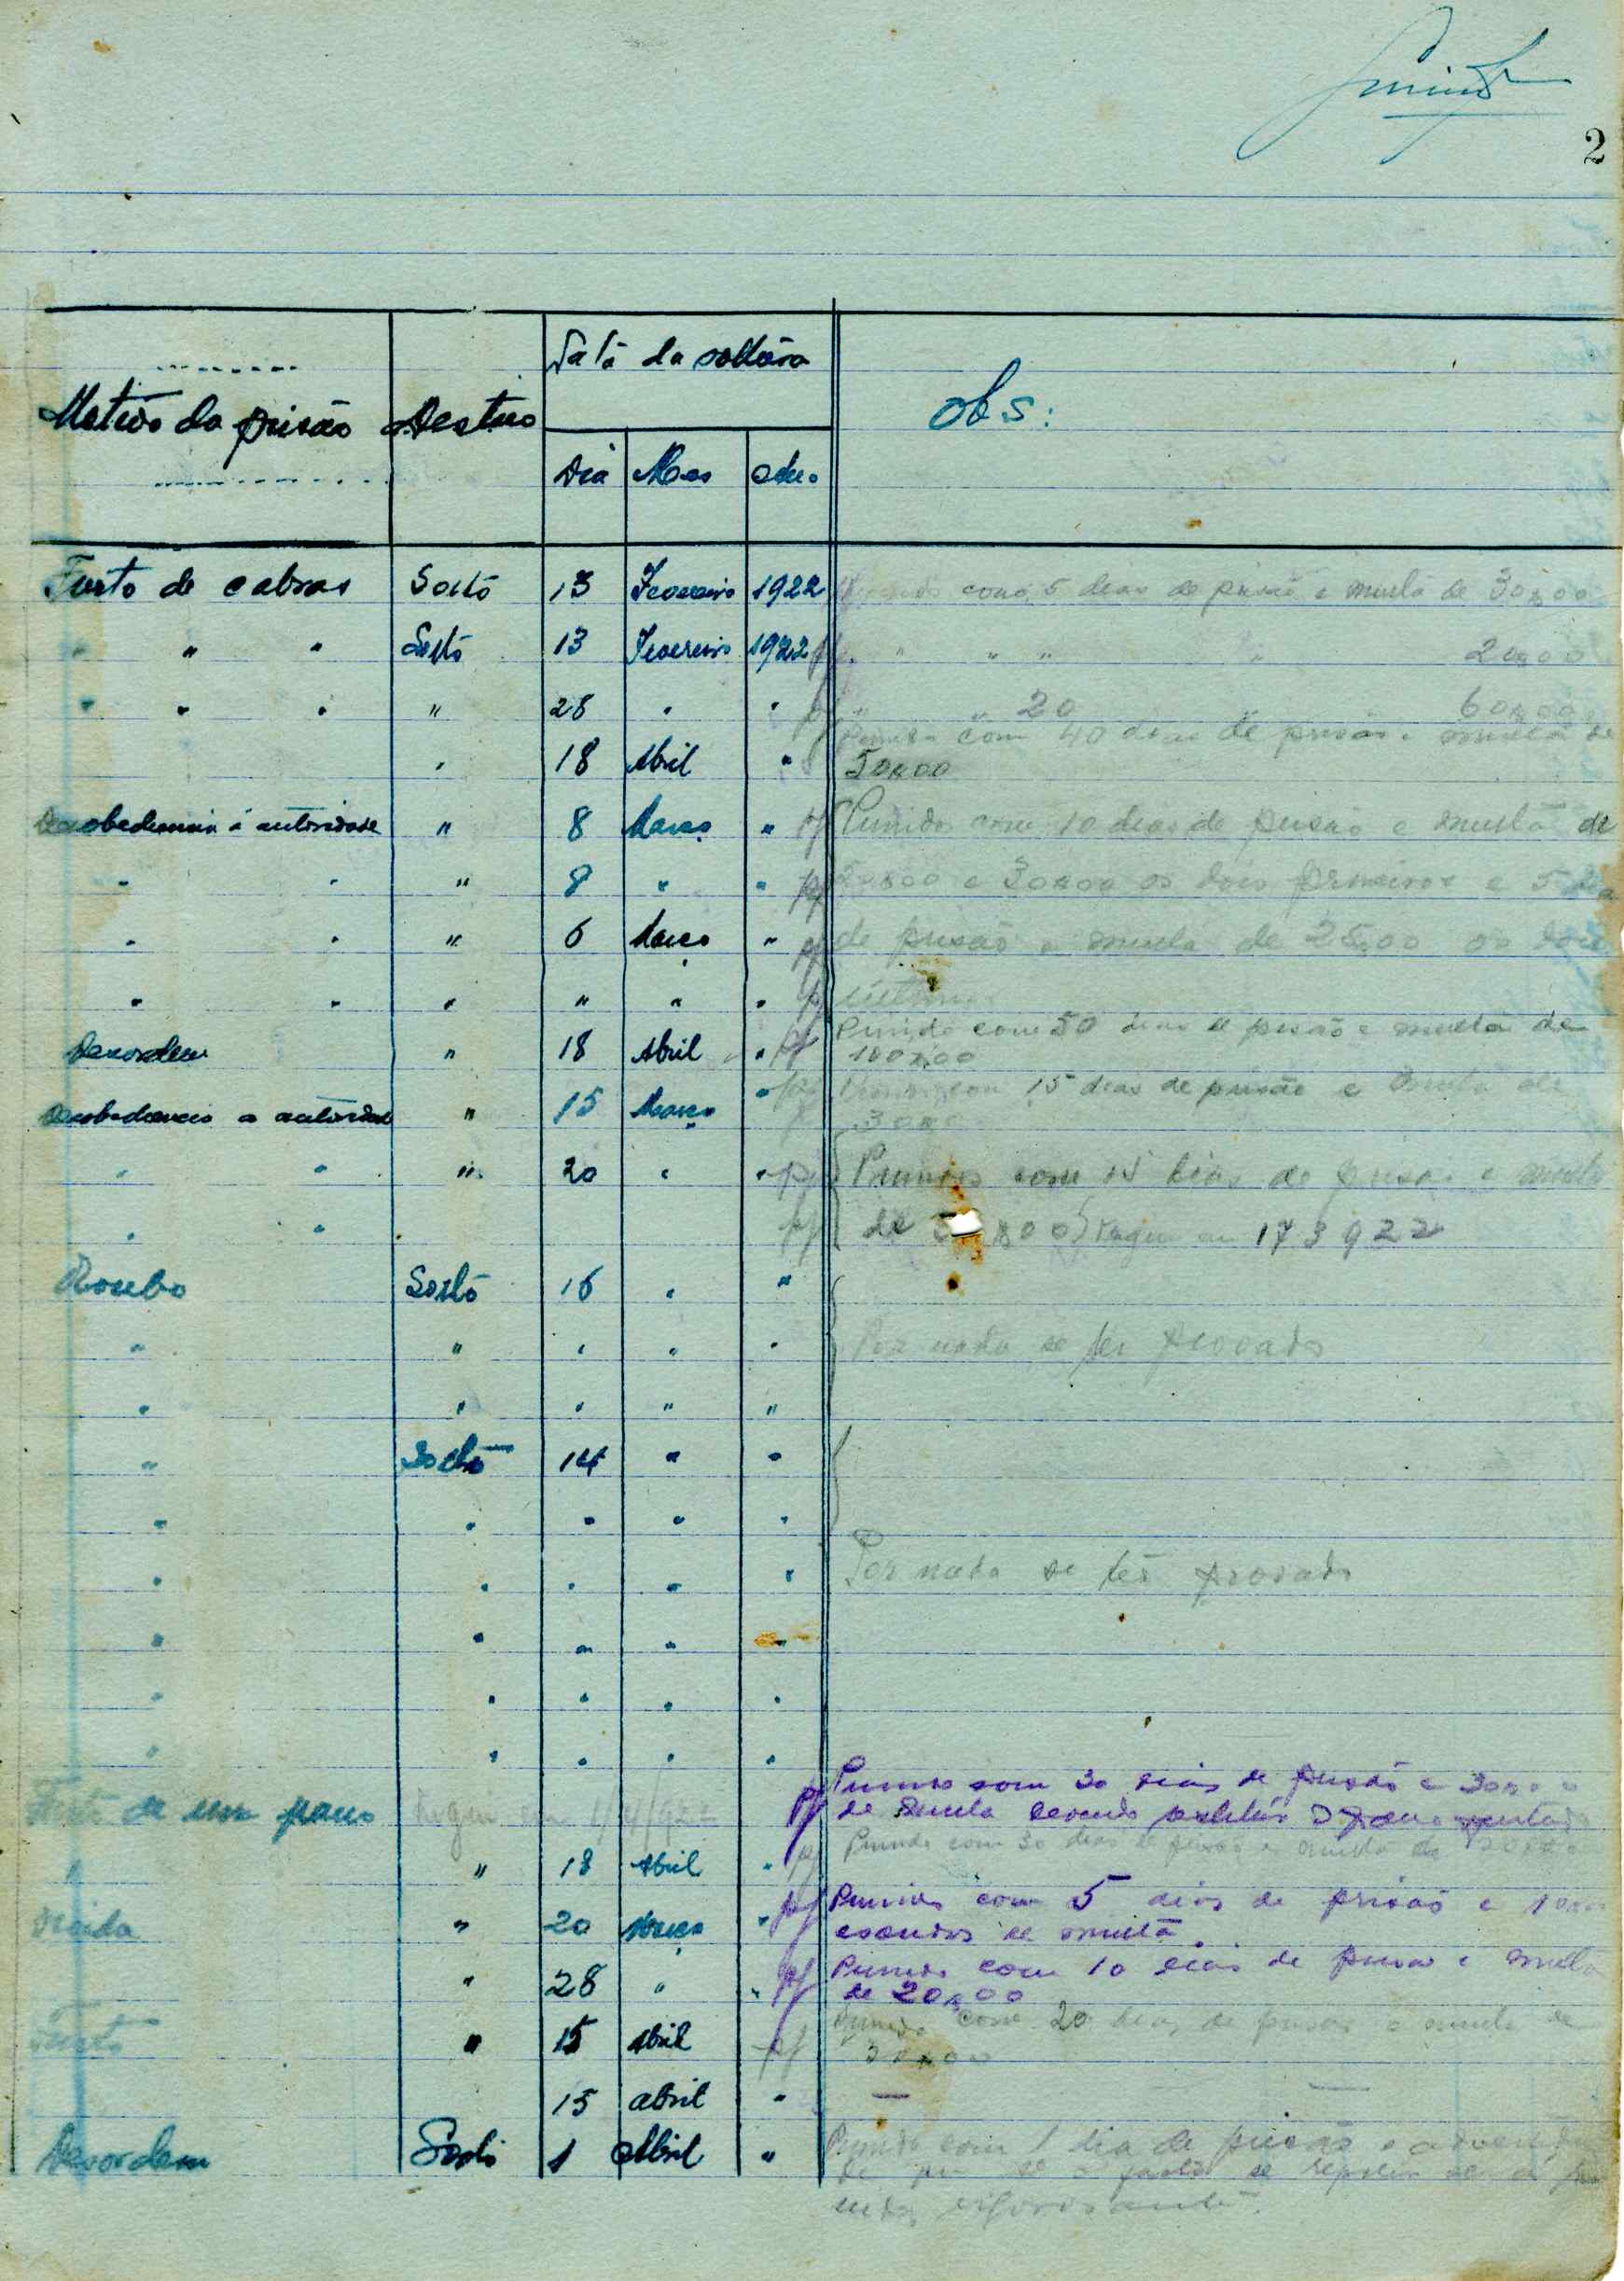 2
Data da soltura
Motivo da prisão Destino Obs:
Dia Mes Ano
Furto de cabras Solto 13 Fevereiro 1922 com 5 dias de prisão e multa de 30$00
" " " Solto 13 Fevereiro 1922 " " " " 20$00
" " " " 28 " " " " 20 60$00
Punido com 40 dias de prisão e multa de
" 18 Abril " 50$00
Desobediencia á autoridade " 8 Março " pf Punidos com 10 dias de prisão e multa de
" " " 8 " " pf e 30$00 os dois primeiros e 5 dias
" " " 6 Março " pf de prisão e multa de 25$00 os dois
" " " " " " ultimos
Punido com 50 dias de prisão e multa de
Desordem " 18 Abril " pf 100$00
pf Punido com 15 dias de prisão e multa de
Desobediencia a autoridade " 15 Março " 30$00
" " " 20 " " pf Punidos com 15 dias de prisão e multa
" " pf de $00) Fugiu em 17 3 922
Roubo Solto 16 " "
" " " " " Por nada se ter provado
" " " " "
" Solto 14 " "
" " " " "
" " " " " Por nada se ter provado
" " " " "
" " " " "
" " " " "
Punido com 30 dias de prisão e 30$00
de um pano Fugiu em 1/4/922 pf de multa devendo restituir o pano furtado
Punido com 30 dias de prisão e multa de
" " 18 Abril " pf
Punido com 5 dias de prisão e
" 20 Março " pf escudos de multa.
Punido com 10 dias de prisão e multa
" 28 " " pf de 20$00
Punido com 20 dias de prisão e multa de
Furto " 15 Abril pf 30$00
15 abril " —
Desordem Solto 1 Abril " Punido com 1 dia de prisão e
de que se o facto se repetir
rigorosamente.